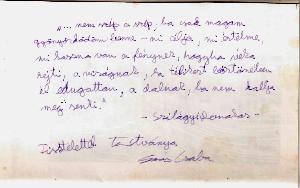 "... nem szép a szép, ha csak magam
gyönyörködöm benne – mi célja, mi értelme,
mi haszna van a fénynek, hogyha véka
rejti, a virágnak, ha télvíz börtönében
el dugattan, a dalnak, ha nem hallja
meg senki."
- Szilágyi Domokos -
Tisztelettel
Csaba